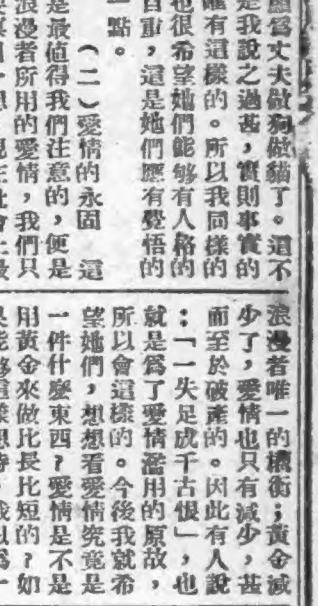 願爲丈夫做狗做貓了。這不
是我說之過甚,實則事實的
確有這樣的。所以我同樣的
也很希望她們能够有人格的
自重,這是她們應有覺悟的
一點。
(二)愛情的永固 這
是最值得我們注意的,便是
浪漫者所用的愛情,我們只
浪漫者唯一的權衡;黃金減
少了,愛情也只有減少,甚
而至於破產的。因此有人說
:「一失足成千古恨」,也
就是爲了愛情濫用的原故,
所以會這樣的。今後我就希
望她們,想想看愛情究竟是
一件什麼東西?愛情是不是
用黃金來做比長比短的?如